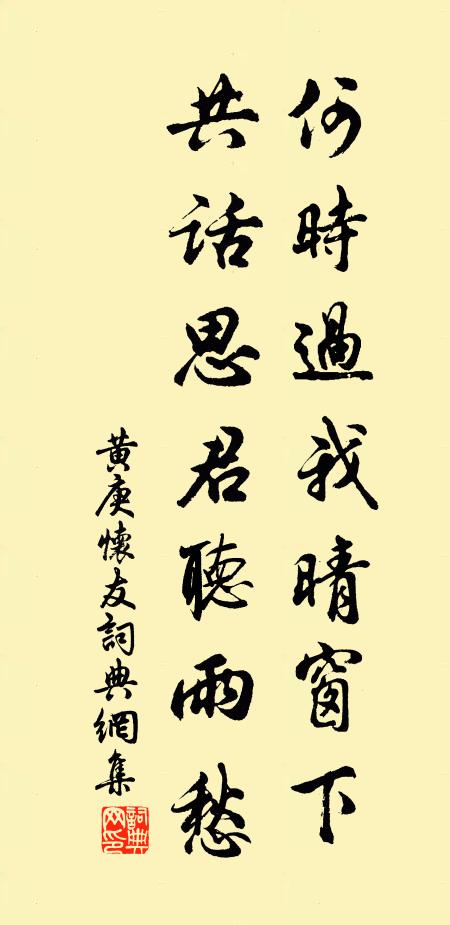 何時過我晴窗下
共话思君聽雨愁
黄庚懷友詞典網集
詞典網印